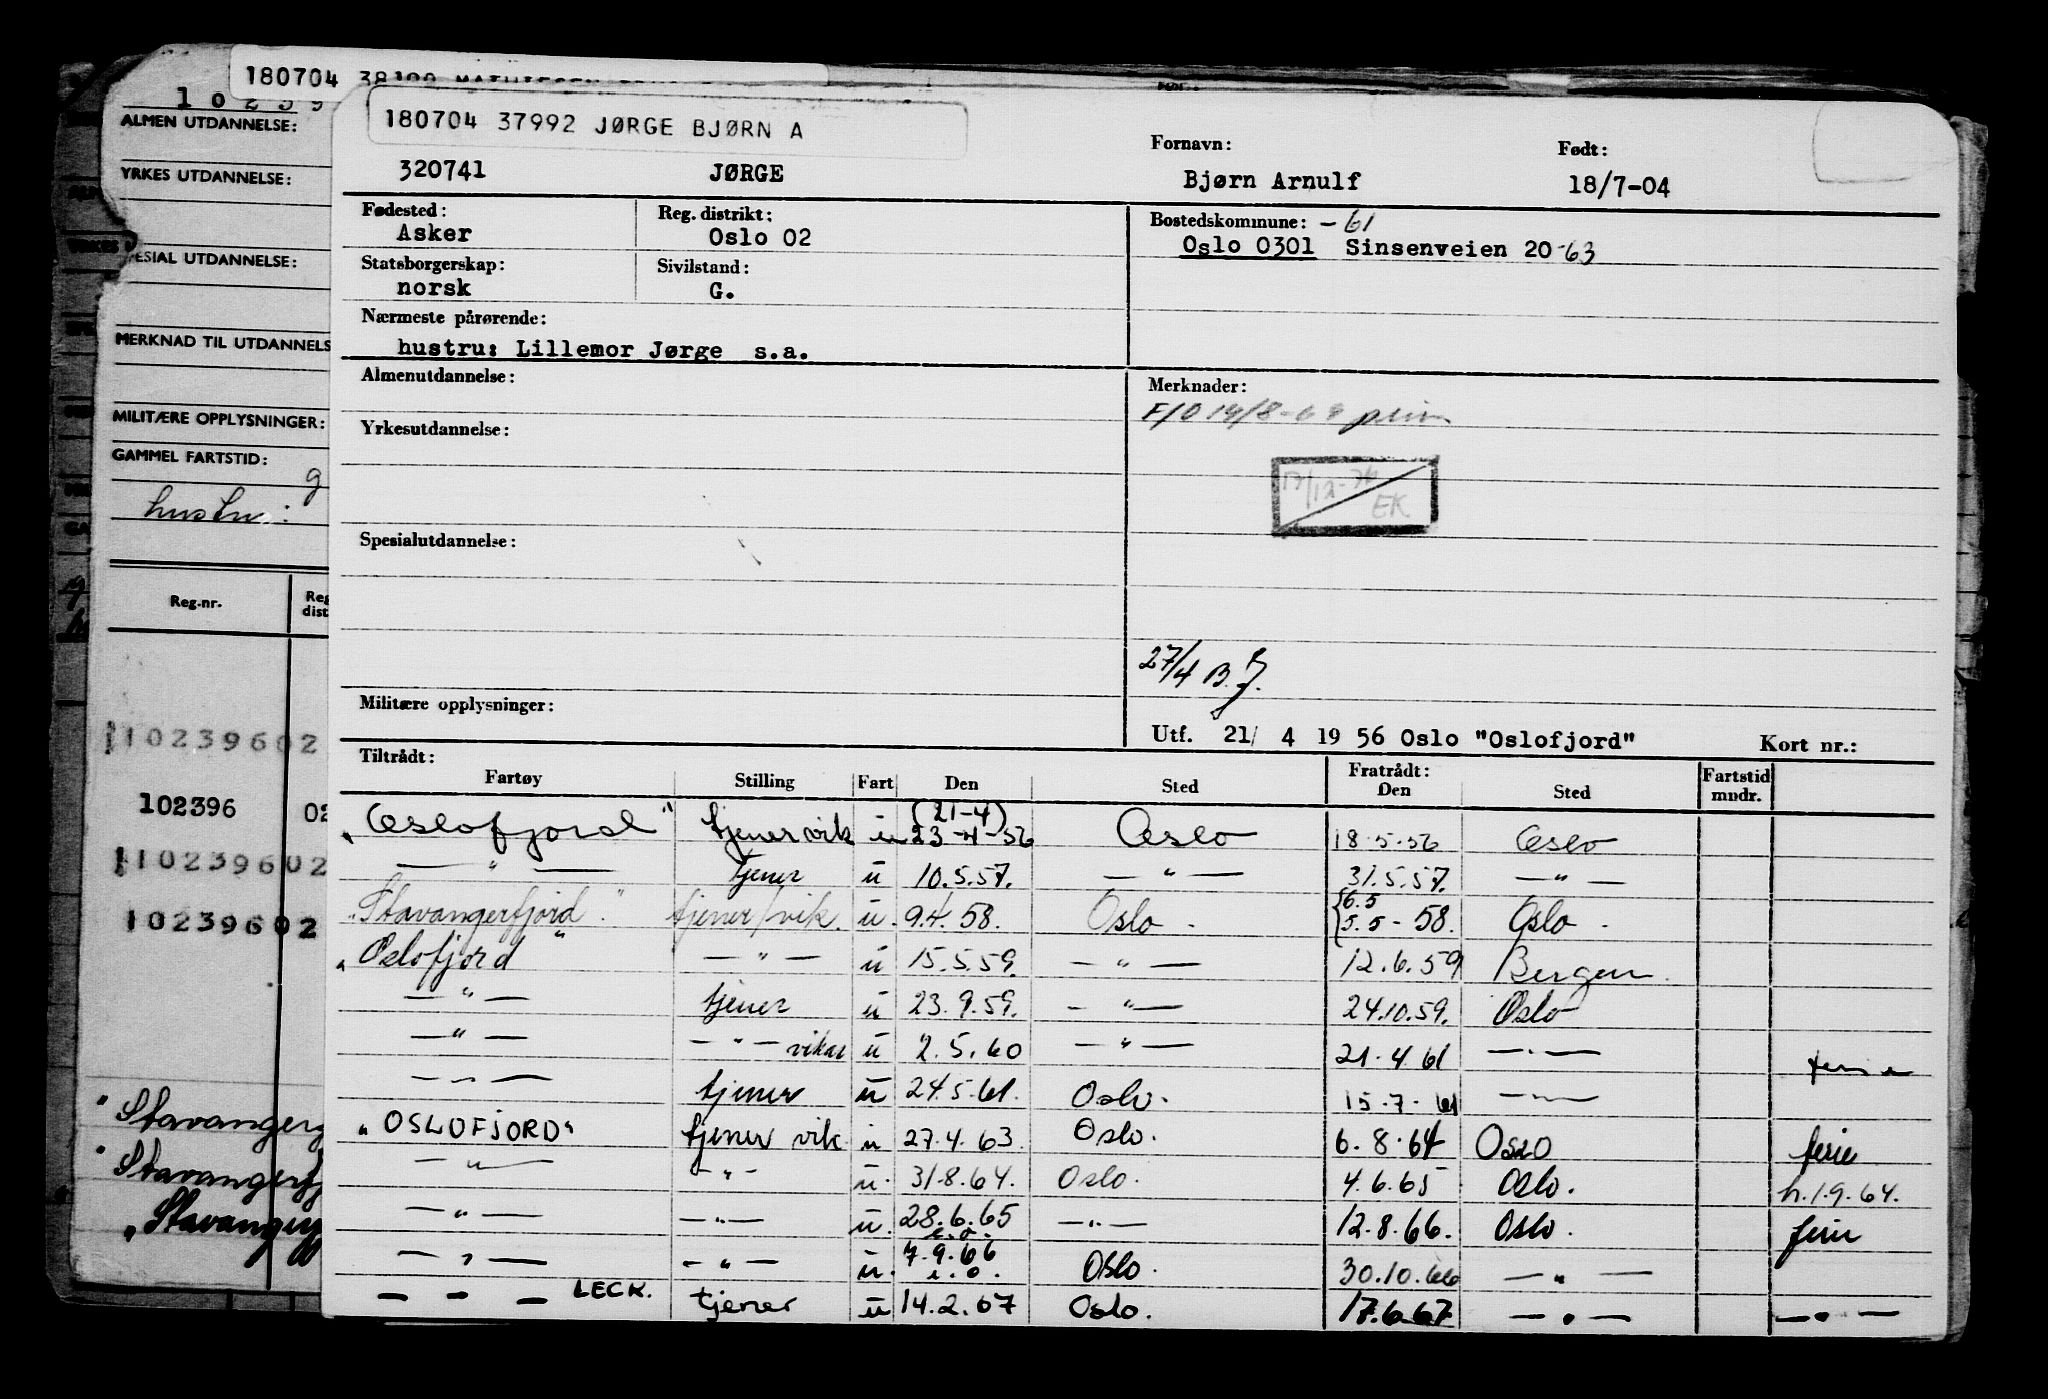 180704 38100 MATHIESEN
10239
ALMEN UTDANNELSE:
YRKES UTDANNELSE:
SPESIAL UTDANNELSE:
MERKNAD TIL UTDANNELS
MILITÆRE OPPLYSNINGER:
GAMMEL FARTSTID:
g
hustru:
Reg.-nr. Reg dist
10239602
102396 02
10239602
10239602
" Stavangerf
" Stavangerfj
" Stavangerf
180704 37992 JØRGE BJØRN A
Fornavn: Født:
320741 JØRGE Bjørn Arnulf 18/7-04
Fødested: Reg. distrikt: Bostedskommune: -61
Asker Oslo 02 Oslo 0301 Sinsenveien 20 -63
Statsborgerskap: Sivilstand:
norsk G.
Nærmeste pårørende:
hustru: Lillemor Jørge s.a.
Almenutdannelse: Merknader:
F/O 14/8-69
Yrkesutdannelse:
17/12-74
EK
Spesialutdannelse:
27/4 B.J.
Militære opplysninger:
Utf. 21/ 4 19 56 Oslo "Oslofjord" Kort nr.:
Tiltrådt: Fratrådt:
Fartøy Stilling Fart Den Sted Den Sted Fartstid mndr.
(21-4)
"Oslofjord" tjener vik u 23-4-56 Oslo 18.5.56 Oslo
— " — tjener u 10.5.57. — " — 31.5.57. — " —
"Stavangerfjord" tjener/vik. u. 9.4.58. Oslo {6.5 5.5-58. Oslo
"Oslofjord" — " — u 15.5.59. — " — 12.6.59 Bergen.
— " — tjener u 23.9.59. — " — 24.10.59. Oslo
— " — — " — vikar u 2.5.60 — " — 21.4.61 — " — ferie
— " — tjener u 24.5.61. Oslo. 15.7.61 — " —
"OSLOFJORD" tjener vik. u 27.4.63. Oslo. 6.8.64 Oslo ferie
— " — — " — u. 31.8.64. Oslo. 4.6.65 Oslo. h.1.9.64.
— " — — " — u. 28.6.65 — " — 12.8.66. Oslo. ferie
e.o.
— " — — " — u. 7.9.66 Oslo. 30.10.66 — " —
e.o.
— — — LECK. tjener u 14.2.67 Oslo. 17.6.67 — " — — " —